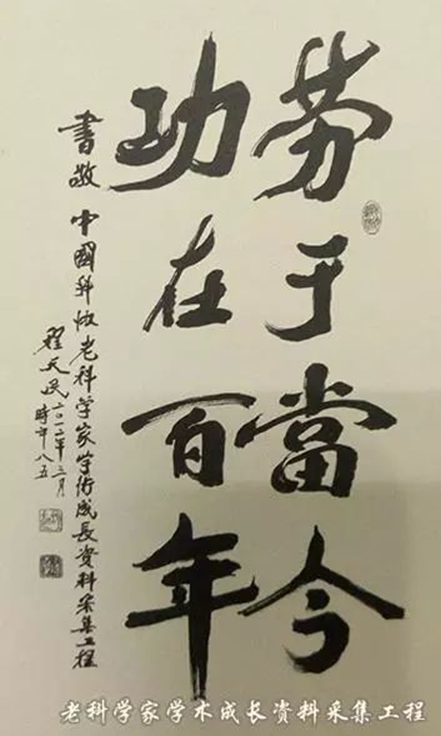 劳于當今
功在百年
書敬 中國科协老科学家学術成長資料采集工程
程天民二〇一二年三月
時年八五
老科学家学术成长资料采集工程